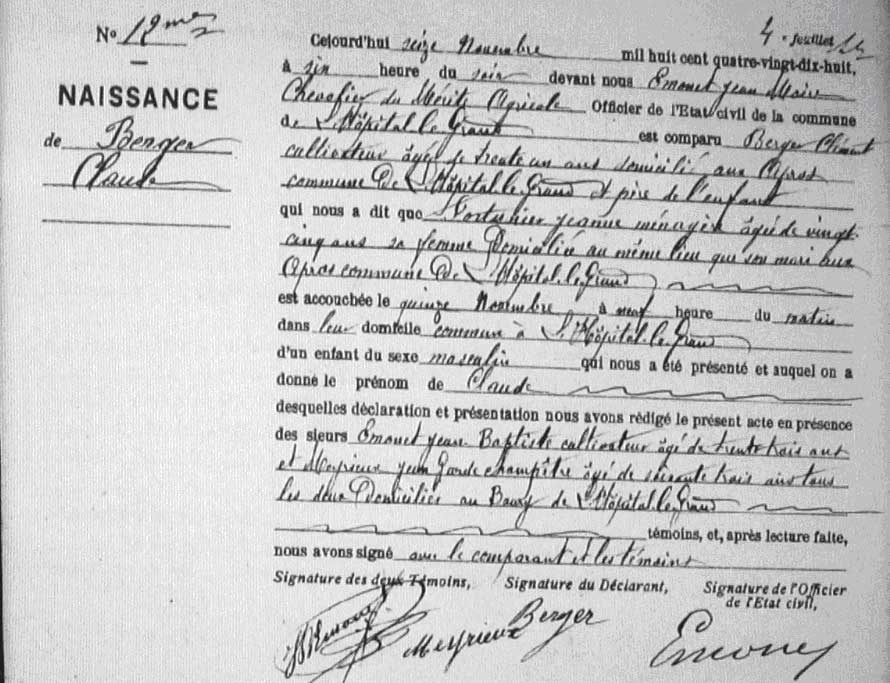 4e feuillet
No 12
NAISSANCE
de Berger
Claude
Cejourd'hui seize Novembre mil huit cent quatre-vingt-dix-huit,
à six heure du soir devant nous Emonet Jean Maire
Chevalier du Mérite Agricole Officier de l'Etat civil de la commune
de L'Hôpital-le-Grand est comparu Berger Clément
cultivateur âgé de trente un ans domicilié aux
commune De L'Hôpital-le-Grand et père de l'enfant
qui nous a dit que Jeanne ménagère âgée de vingt-
cinq ans sa femme Domiciliée au même lieu que son mari aux
commune De L'Hôpital-le-Grand
est accouchée le quinze Novembre à neuf heure du matin
dans leur domicile commune à L'Hôpital-le-Grand
d'un enfant du sexe masculin qui nous a été présenté et auquel on a
donné le prénom de Claude
desquelles déclaration et présentation nous avons rédigé le présent acte en présence
des sieurs Emonet Jean Baptiste cultivateur âgé de trente trois ans
et Meyrieux Jean Garde champêtre âgé de soixante trois ans tous
les deux Domiciliés au Bourg de L'Hôpital-le-Grand
témoins, et, après lecture faite,
nous avons signé avec le comparant et les témoins
Signature des deux Témoins, Signature du Déclarant, Signature de l'Officier
de l'Etat civil,
Meyrieux Berger Emonet